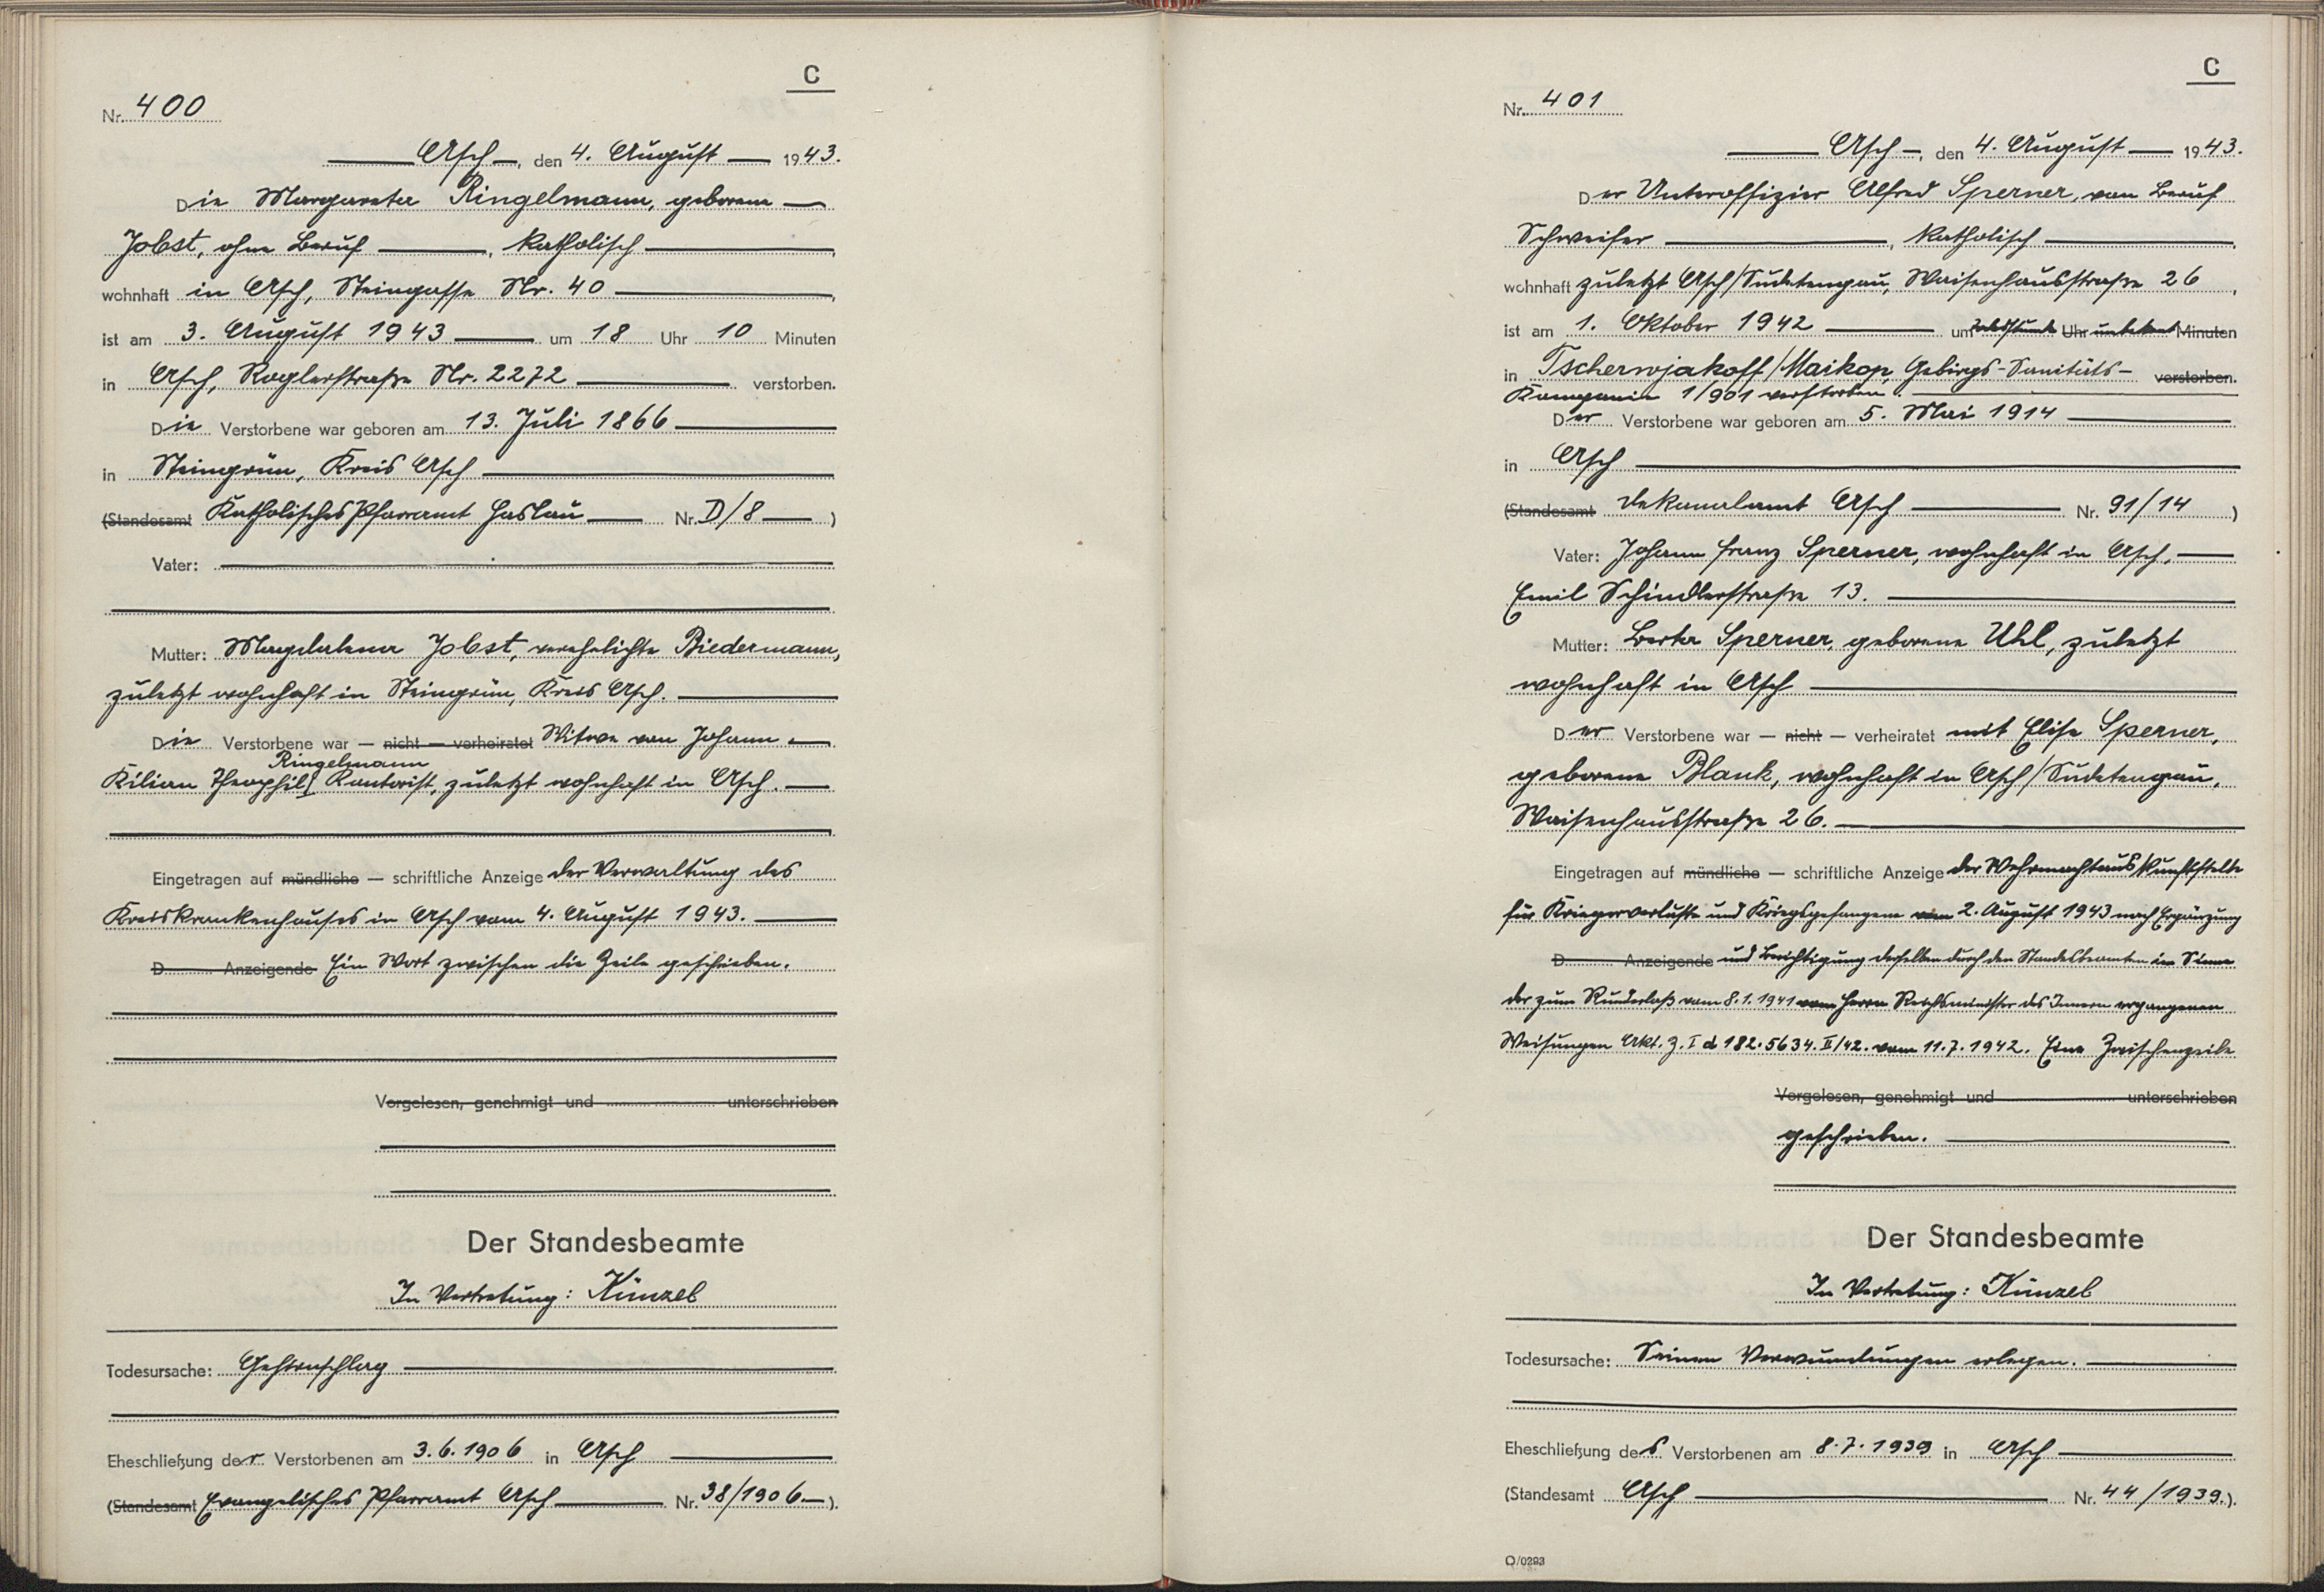 C
Nr. 400
Asch, den 4. August 1943.
Die Margareta Ringelmann, geborene
Jobst, ohne Beruf, katholisch,
wohnhaft in Asch, Steingasse Nr. 40,
ist am 3. August 1943 um 18 Uhr 10 Minuten
in Asch, Roglerstraße Nr. 2272 verstorben.
Die Verstorbene war geboren am 13. Juli 1866
in Steingrün, Kreis Asch
(Standesamt Katholisches Pfarramt Haslau Nr. D/8)
Vater:
Mutter: Magdalena Jobst, verehelichte Biedermann,
zuletzt wohnhaft in Steingrün, Kreis Asch.
Die Verstorbene war — nicht — verheiratet Witwe von Johann
Ringelmann
Kilian Theophil Kontorist, zuletzt wohnhaft in Asch.
Eingetragen auf mündliche — schriftliche Anzeige der Verwaltung des
Kreiskrankenhauses in Asch vom 4. August 1943.
D Anzeigende Ein Wort zwischen die Zeile geschrieben.
Vorgelesen, genehmigt und unterschrieben
Der Standesbeamte
In Vertretung: Künzel
Todesursache: Gehirnschlag
Eheschließung der Verstorbenen am 3.6.1906 in Asch
(Standesamt Evangelisches Pfarramt Asch Nr. 38/1906).
C
Nr. 401
Asch, den 4. August 1943.
Der Unteroffizier Alfred Sperner, von Beruf
Schweißer, katholisch,
wohnhaft zuletzt Asch/Sudetengau, Waisenhausstraße 26,
ist am 1. Oktober 1942 um Todesstunde Uhr unbekannt Minuten
in Tscherwjakoff/Maikop, Gebirgs-Sanitäts- verstorben.
Kompanie 1/901 verstorben.
Der Verstorbene war geboren am 5. Mai 1914
in Asch
(Standesamt Dekanalamt Asch Nr. 91/14)
Vater: Johann Franz Sperner, wohnhaft in Asch,
Emil Schindlerstraße 13.
Mutter: Berta Sperner, geborene Uhl, zuletzt
wohnhaft in Asch
Der Verstorbene war — nicht — verheiratet mit Elise Sperner,
geborene Blank, wohnhaft in Asch/Sudetengau,
Waisenhausstraße 26.
Eingetragen auf mündliche — schriftliche Anzeige der Wehrmachtauskunftstelle
für Kriegerverluste und Kriegsgefangene vom 2. August 1943 nach Ergänzung
D Anzeigende und Berichtigung derselben durch den Standesbeamten im Sinne
der zum Runderlaß vom 8.1.1941 vom Herrn Reichsminister des Innern ergangenen
Weisungen Akt. Z. I d 182.5634.II/42. vom 11.7.1942. Eine Zwischenzeile
Vorgelesen, genehmigt und unterschrieben
geschrieben.
Der Standesbeamte
In Vertretung: Künzel
Todesursache: Seinen Verwundungen erlegen.
Eheschließung des Verstorbenen am 8.7.1939 in Asch
(Standesamt Asch Nr. 44/1939.).
O/0293